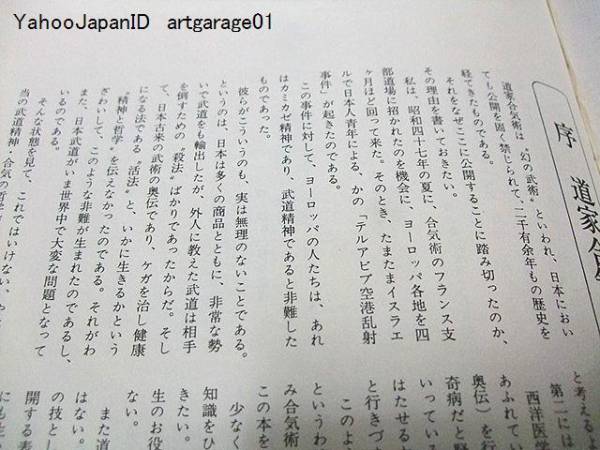 YahooJapanID artgarage01
序 道家合気
道家合気術は〝幻の武術〟といわれ、日本におい
ても公開を固く禁じられて、二千有余年もの歴史を
経てきたものである。
それをなぜここに公開することに踏み切ったのか、
その理由を書いておきたい。
私は、昭和四十七年の夏に、合気術のフランス支
部道場に招かれたのを機会に、ヨーロッパ各地を四
ヶ月ほど回って来た。そのとき、たまたまイスラエ
ルで日本人青年による、かの「テルアビブ空港乱射
事件」が起きたのである。
この事件に対して、ヨーロッパの人たちは、あれ
はカミカゼ精神であり、武道精神であると非難した
ものであった。
彼らがこういうのも、実は無理のないことである。
というのは、日本は多くの商品とともに、非常な勢
いで武道をも輸出したが、外人に教えた武道は相手
を倒すための〝殺法〟ばかりであったからだ。そし
て、日本古来の武術の奥伝であり、ケガを治し健康
になる法である〝活法〟と、いかに生きるかという
〝精神と哲学〟を伝えなかったのである。それがわ
ざわいして、このような非難が生まれたのであるし、
また、日本武道がいま世界中で大変な問題となって
いるのである。
そんな状態を見て、これではいけない、
当の武道精神・合気の哲学
と考えるよ
第二には
西洋医学
あふれてい
奥伝）を行
奇病だと騒
いっている
はたせるか
と行きづま
このよ
というわ
み合気術
この本を
少なく
知識をひ
きたい。
生のお役
ない。
また道
はない。
の技とし
開する表
にも生